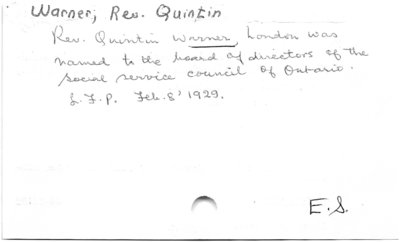 Warner, Rev. Quintin
Rev. Quintin Warner, London was
named to the board of directors of the
social service council of Ontario.
L.F.P. Feb. 8' 1929.
E.S.